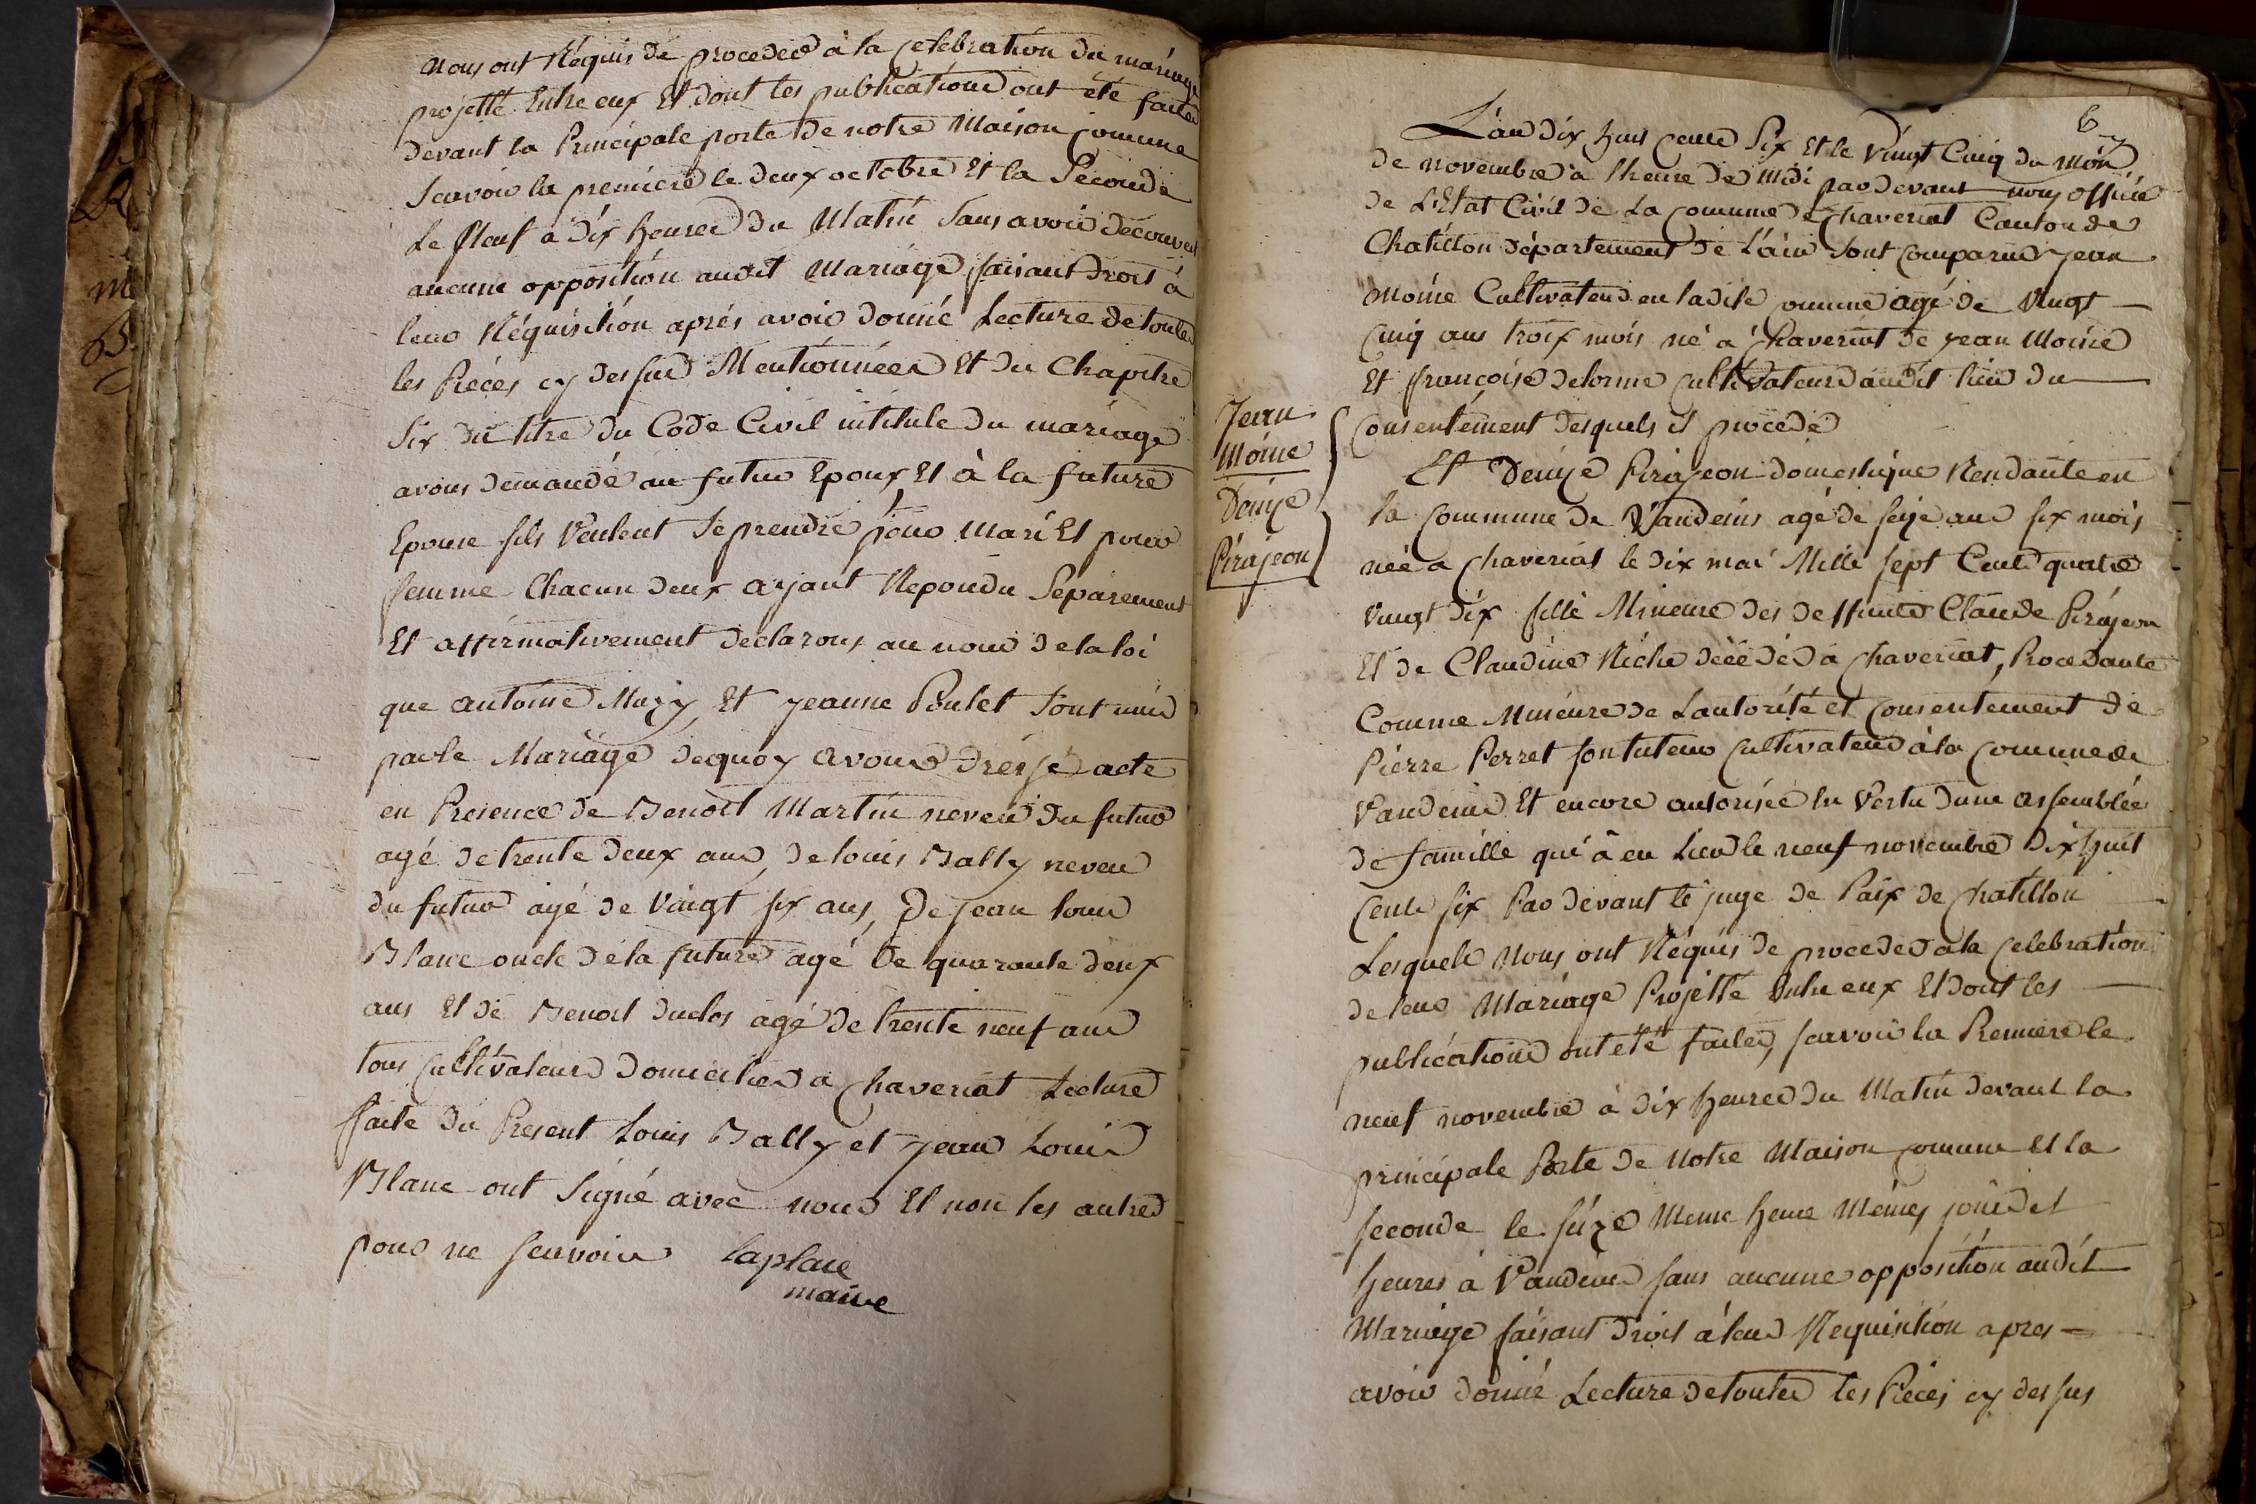 nous ont Réquis de proceder à la celebration du mariage
projetté Entre eux Et dont les publications ont été faites
devant la Principale porte de notre Maison comune
scavoir la premiere le deux octobre Et la Seconde
Le Neuf a dix heures du Matin Sans avoir découvert
aucune opposition audit Mariage faisant droit à
leur Réquisition aprés avoir donné Lecture de toutes
les Piéces cy dessus Mentionnées Et du Chapitre
Six du titre du Code Civil intitulé du mariage
avons demandé au futur Epoux Et à la future
Epouse s'ils Veulent Se prendre pour Mari Et pour
femme Chacun deux ayant Repondu Séparement
Et affirmativement declarons au nom de la loi
que antoine Mazy Et jeanne Poulet Sont unis
par le Mariage dequoy avons dressé acte
en Présence de Benoit Martin neveu du futur
agé de trente deux ans, de louis Bally neveu
du futur agé de Vingt six ans, De jean louis
Blanc oncle de la future agé de quarante deux
ans Et de Benoit duclos agé de trente neuf ans
tous cultivateurs domiciliés a chaveriat Lecture
faite du Present Louis Bally et jean Louis
Blanc ont Signé avec nous Et non les autres
pour ne scavoir laplace
maire
6
L'an dix huit cents Six Et le Vingt Cinq du Mois
de novembre à l'heure de Midi par devant nous officier
de L'Etat Civil de La comune de chaveriat Canton de
Chatillon département de L'ain Sont comparus jean
Moine Cultivateur en ladite comune agé de Vingt
cinq ans troix mois né à chaveriat de jean Moine
Et françoise delorme cultivateurs audit lieu du
consentement desquels il procede
Jean
Moine
Denize
Pirajeon
Et Denize Pirajeon domestique Rendante en
la Commune de Vandeins agé de seize ans six mois
née a chaveriat le dix mai Mille sept Cents quatre
vingt dix fille Mineure des deffunts Claude Pirajeon
Et de Claudine Niche décédés à chaveriat, Procedante
Comme Mineure de Lautorité et consentement de
Pierre Perret son tuteur cultivateur à la comune de
Vandeins Et encore autorisée En Vertu dune assemblée
de famille qui à eu Lieu le neuf novembre dix huit
cents six Par devant le juge de Paix de chatillon
Lesquels Nous ont Réquis de proceder à la celebration
de leur Mariage Projetté Entre eux Et dont les
publications ont été faites, scavoir la Premiere le
neuf novembre à dix heures du Matin devant la
principale Porte de Notre Maison comune Et la
seconde le seize Meme heure Mêmes jours et
heures à Vandeins sans aucune opposition audit
Mariage faisant droit à leur Requisition apres
avoir donné Lecture de toutes les Piéces cy dessus